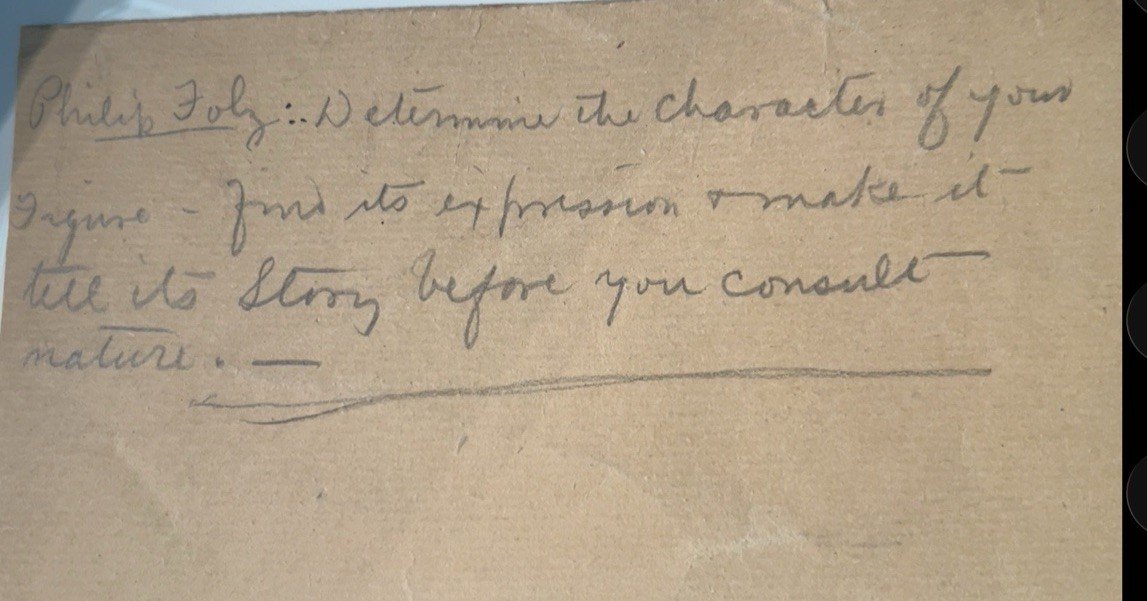 Philip Folz:. Determine the Character of your
Figure - find its expression & make it
tell its Story before you consult
nature. —